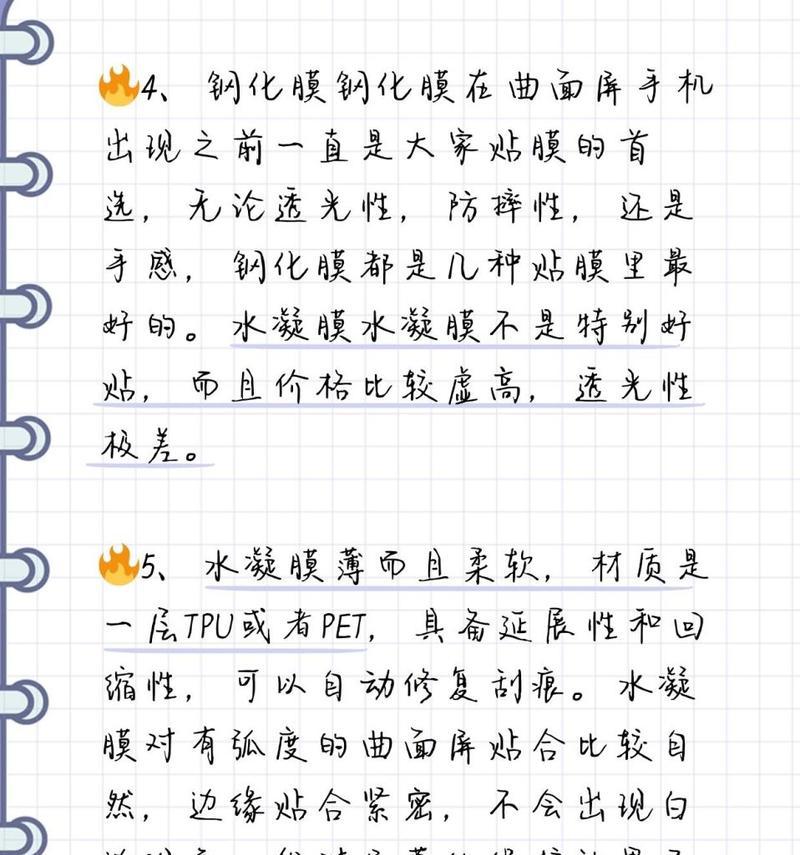 🔥4、钢化膜钢化膜在曲面屏手机
出现之前一直是大家贴膜的首
选，无论透光性，防摔性，还是
手感，钢化膜都是几种贴膜里最
好的。水凝膜水凝膜不是特别好
贴，而且价格比较虚高，透光性
极差。
🔥5、水凝膜薄而且柔软，材质是
一层TPU或者PET，具备延展性和回
缩性，可以自动修复刮痕。水凝
膜对有弧度的曲面屏贴合比较自
然，边缘贴合紧密，不会出现白